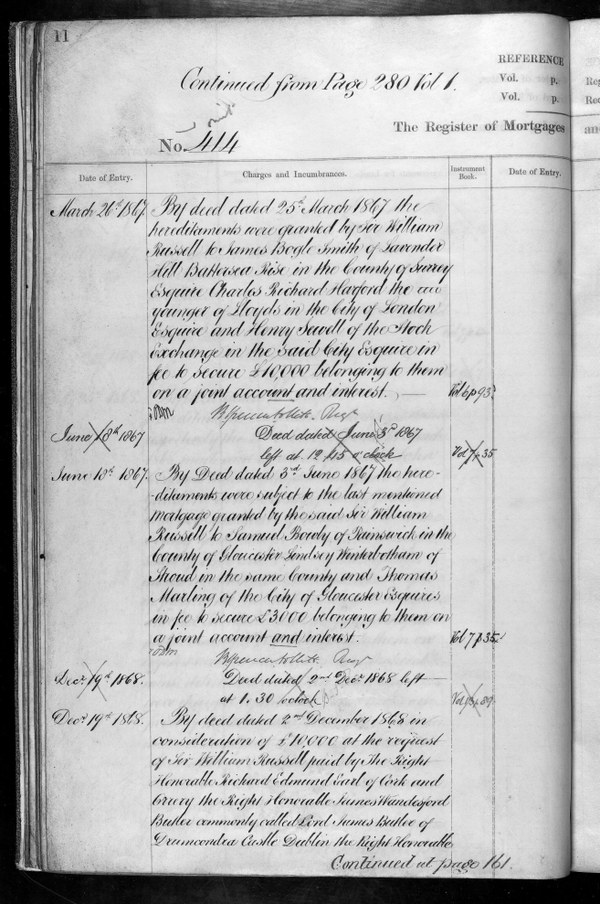 11
REFERENCE
Continued from Page 280 Vol 1.
Vol. p.
Vol. p.
No. 414
The Register of Mortgages
Date of Entry.
Charges and Incumbrances.
Instrument Book.
Date of Entry.
March 26th 1867
By deed dated 25th March 1867 the
hereditaments were granted by Sir William
Russell to James Bogle Smith of Lavender
Hill Battersea Rise in the County of Surrey
Esquire Charles Richard Harford the
younger of Lloyds in the City of London
Esquire and Henry Sewell of the Stock
Exchange in the said City Esquire in
fee to secure £10,000 belonging to them
on a joint account and interest.
Vol 6 p 93
June 8th 1867
Deed dated June 3rd 1867
left at 12.15 o'clock
Vol 7 p 35
June 18th 1867.
By Deed dated 3rd June 1867 the here-
-ditaments were subject to the last mentioned
mortgage granted by the said Sir William
Russell to Samuel Bowly of Painswick in the
County of Gloucester Lindsey Winterbotham of
Stroud in the same County and Thomas
Marling of the City of Gloucester Esquires
in fee to secure £3000 belonging to them on
a joint account and interest.
Vol 7 p 35
Decr 19th 1868.
Deed dated 2nd Decr 1868 left
at 1.30 o'clock
Decr 19th 1868.
By deed dated 2nd December 1868 in
consideration of £10,000 at the request
of Sir William Russell paid by The Right
Honorable Richard Edmund Earl of Cork and
Orrery the Right Honorable James Wandesford
Butler commonly called Lord James Butler of
Drumcondra Castle Dublin the Right Honorable
Continued at page 161.